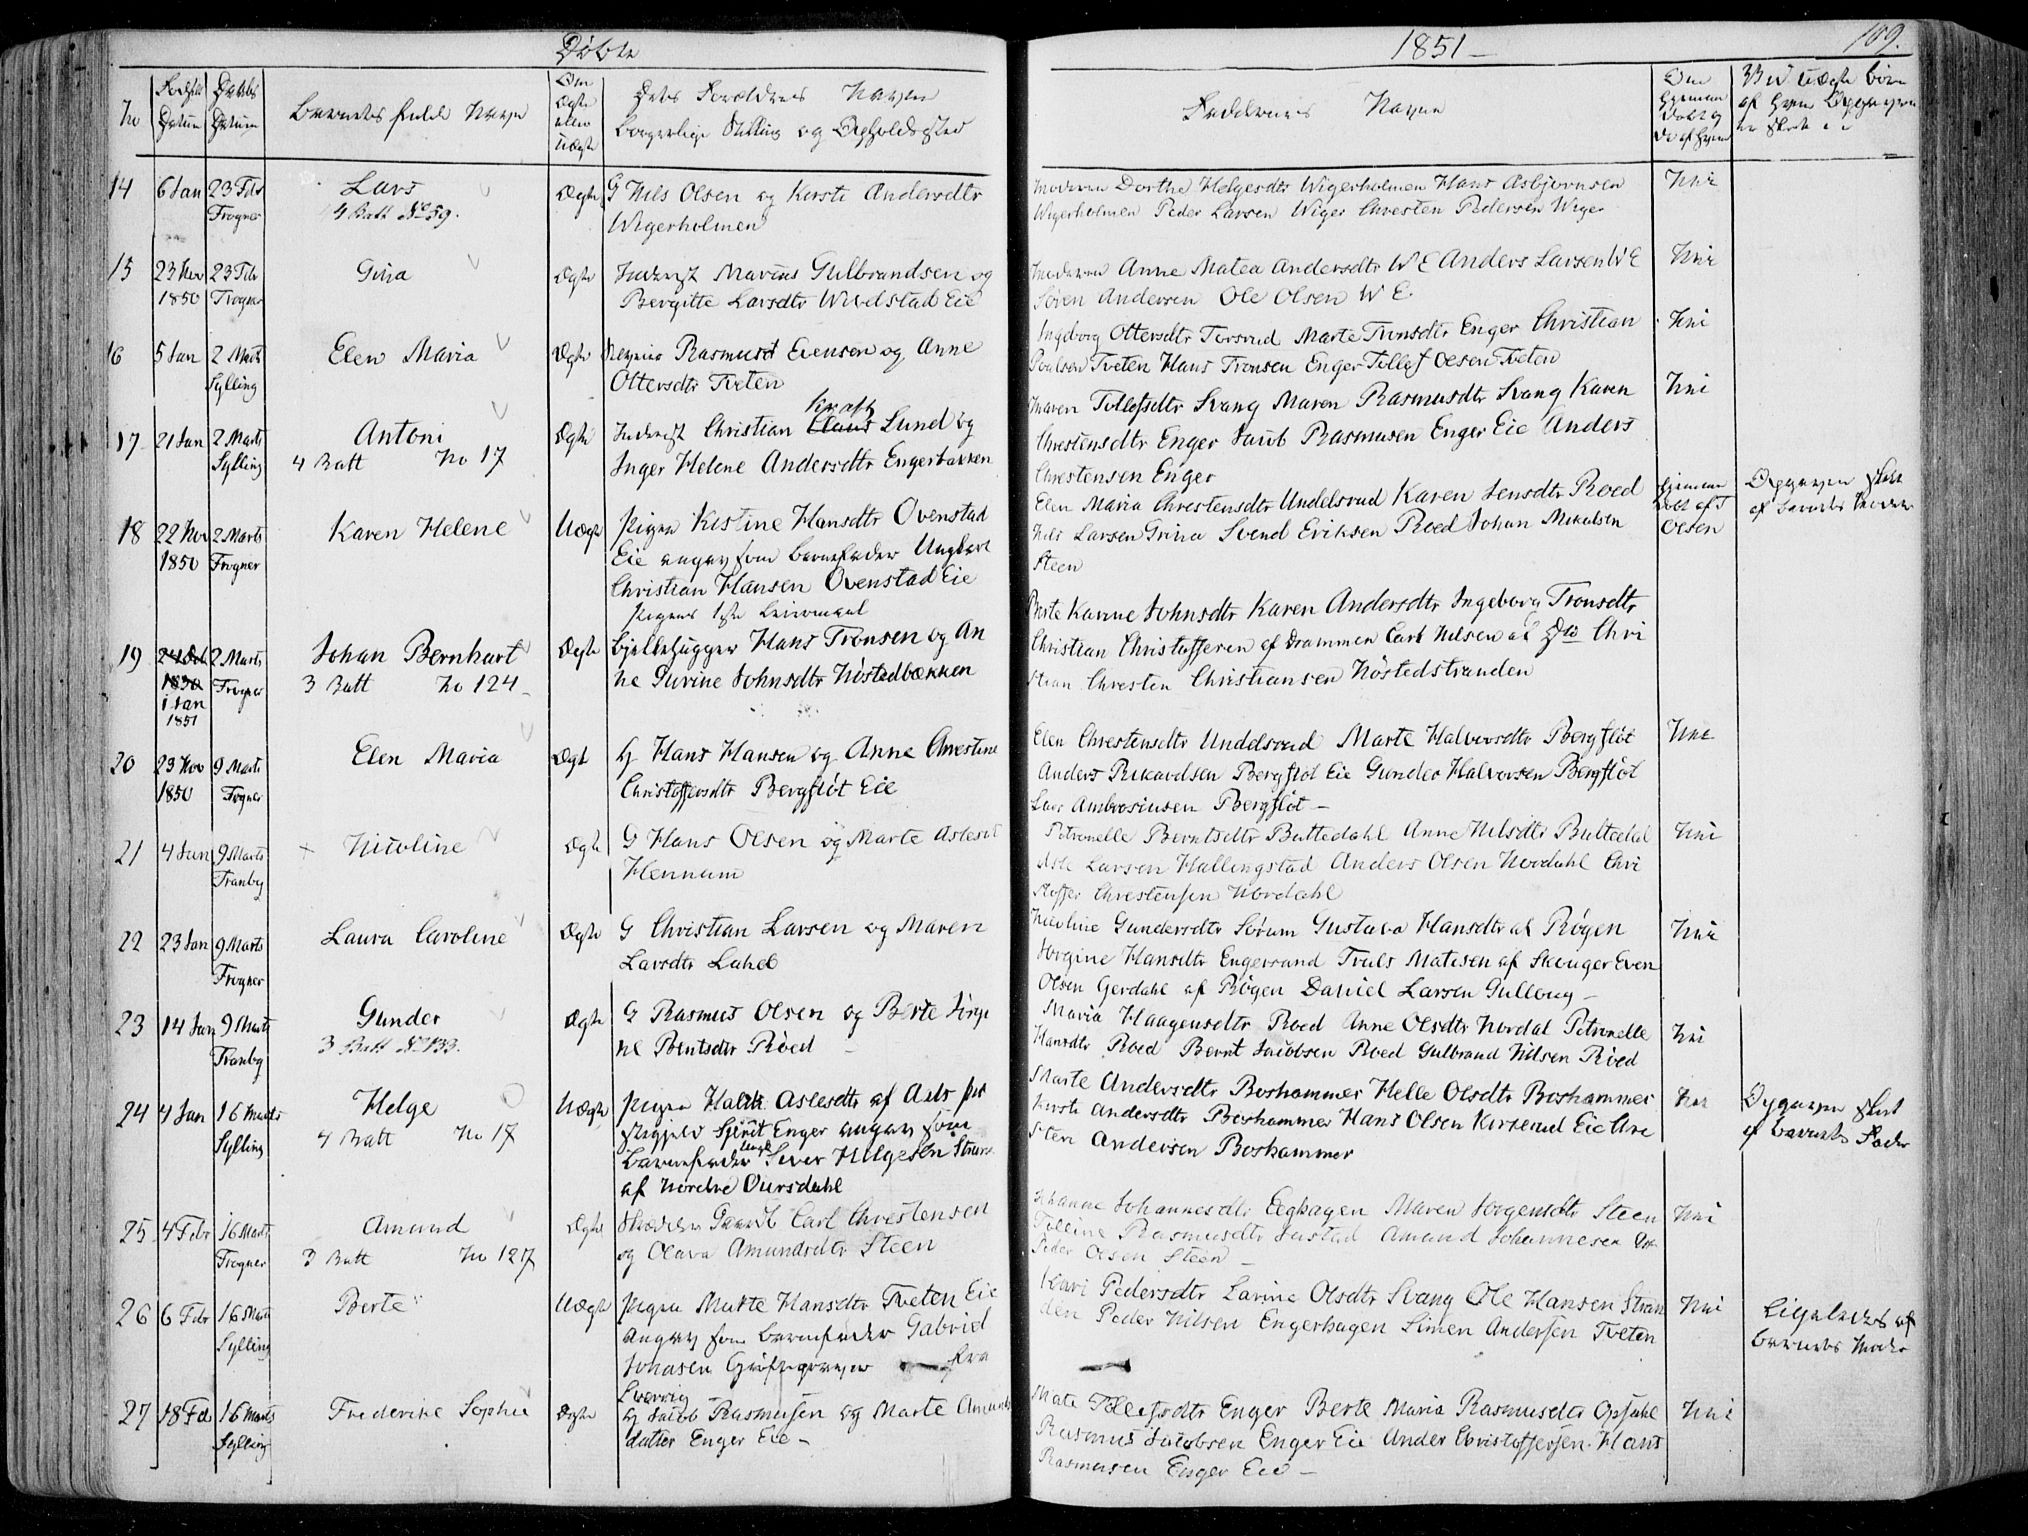 Døbte
1851 –
109.
No
Datum
Datum
Barnets fulde Navn
Om Ægte eller Uægte
Forældres Navn
borgerlige Stilling og Opholdssted
Faddernes Navne
14 6 Jan 23 Febr Frogner
Lars
4 Batt No 59.
Ægte
G Nils Olsen og Kirsti Andersdtr
Wigerholmen
Moderen Dorthe Helgesdtr Wigerholmen Hans Asbjørnsen
Wigerholmen Peder Larsen Wiger Chresten Pedersen Wiger
Nei
15 23 Nov 1850 23 Feb Frogner
Gina
Ægte
Inderst Marius Gulbrandsen og
Bergitte Larsdtr Wivelstad Eie
Moderen Anne Matea Andersdtr W E Anders Larsen W E
Søren Andersen Ole Olsen W E.
Nei
16 5 Jan 2 Marts Sylling
Elen Maria
Ægte
Rasmus Evensen og Anne
Ottersdtr Tveten
Ingeborg Ottersdtr Torsrud Marte Tronsdtr Enger Christian
Poulsen Tveten Hans Tronsen Enger Tollef Olsen Tveten
Nei
17 21 Jan 2 Marts Sylling
Antoni
4 Batt No 17
Ægte
Inderst Christian Lund og
Inger Helene Andersdtr Engerbakken
Maren Tollefsdtr Svang Maren Rasmusdtr Svang Karen
Chrestensdtr Enger Jacob Rasmusen Enger Eie Anders
Chrestensen Enger
Nei
18 22 Nov 1850 2 Marts Frogner
Karen Helene
Uægte
Pigen Kistine Hansdtr Ovenstad
Eie angav som Barnefader Ungkarl
Christian Hansen Ovenstad Eie
Pigens 1ste Leiermaal
Elen Maria Chrestensdtr Undelsrud Karen Jensdtr Roed
Nils Larsen Grina Svend Eriksen Roed Johan Mikelsen
Steen
Hjemme døbt af T Olsen
Opgaven skeet
af Barnets Moder
19 2 Marts Frogner
1 Jan 1851
Johan Bernhart
3 Batt No 124
Ægte
Bjelkehugger Hans Tronsen og An
ne Gurine Johnsdtr Nøstedbækken
Berte Karine Johnsdtr Karen Andersdtr Ingeborg Tronsdtr
Christian Christoffersen af Drammen Carl Nilsen af Do Chri
stian Chresten Christiansen Nøstedstranden
20 23 Nov 1850 9 Marts Frogner
Elen Maria
Ægte
G Hans Hansen og Anne Chrestine
Christoffersdtr Bergfløt Eie
Elen Chrestensdtr Undelsrud Marte Halvorsdtr Bergfløt
Anders Rikardsen Bergfløt Eie Gunder Halvorsen Bergfløt
Lars Ambrosiusen Bergfløt –
Nei
21 4 Jan 9 Marts Tranby
Nicoline
Ægte
G Hans Olsen og Marte Aslesdt
Hennum
Petronelle Berntsdtr Buttedahl Anne Nilsdtr Buttedal
Asle Larsen Hallingstad Anders Olsen Nordahl Chri
stoffer Chrestensen Nordahl
Nei
22 23 Jan 9 Marts Frogner
Laura Caroline
Ægte
G Christian Larsen og Maren
Larsdtr Lahel
Nicoline Gundersdtr Sørum Gustava Hansdtr af Røgen
Jørgine Hansdtr Engersand Truls Matisen af Skouger Even
Olsen Gerdahl af Røgen Daniel Larsen Gullaug –
Nei
23 14 Jan 9 Marts Tranby
Gunder
3 Batt No 133.
Ægte
G Rasmus Olsen og Berte Jørgi
ne Berntsdtr Røed –
Maria Haagensdtr Roed Anne Olsdtr Nordal Petronelle
Hansdtr Roed Bernt Jacobsen Roed Gulbrand Nilsen Røed
Nei
24 4 Jan 16 Marts Sylling
Helge
4 Batt No 17
Uægte
Pigen Aslesdtr af Aals Præ
stegjeld Enger angav som
Barnefader Ungk Sever Helgesen
af Nordre Oursdahl
Marte Andersdtr Boshammer Helle Olsdtr Boshammer
Kirsti Andersdtr Boshammer Hans Olsen Kirkerud Eie Chre
sten Andersen Boshammer
Nei
Opgaven skeet
af Barnets Fader
25 4 Febr 16 Marts Frogner
Amund
3 Batt No 127
Ægte
Skrædder Carl Chrestensen
og Olava Amundsdtr Steen
Johanne Johannesdtr Eeghagen Maren Jørgensdtr Steen
Rasmusdtr Justad Amund Johannesen
Peder Olsen Steen –
Nei
26 6 Febr 16 Marts Sylling
Berte
Uægte
Pigen Marte Hansdtr Tveten Eie
angav som Barnefader Gabriel
Jonasen Grøftegraver fra
Sverrig
Kari Pedersdtr Larine Olsdtr Svang Ole Hansen Stran
den Peder Nilsen Engerhagen Simen Andersen Tveten
Nei
Ligeledes af
Barnets Moder
27 18 Feb 16 Marts Sylling
Frederike Sophie
Ægte
G Jacob Rasmusen og Marte Amunds
datter Enger Eie –
Mate Tollefsdtr Enger Berte Maria Rasmusdtr Opsahl
Rasmus Jacobsen Enger Eie Ander Christoffersen Hans
Rasmusen Enger Eie –
Nei